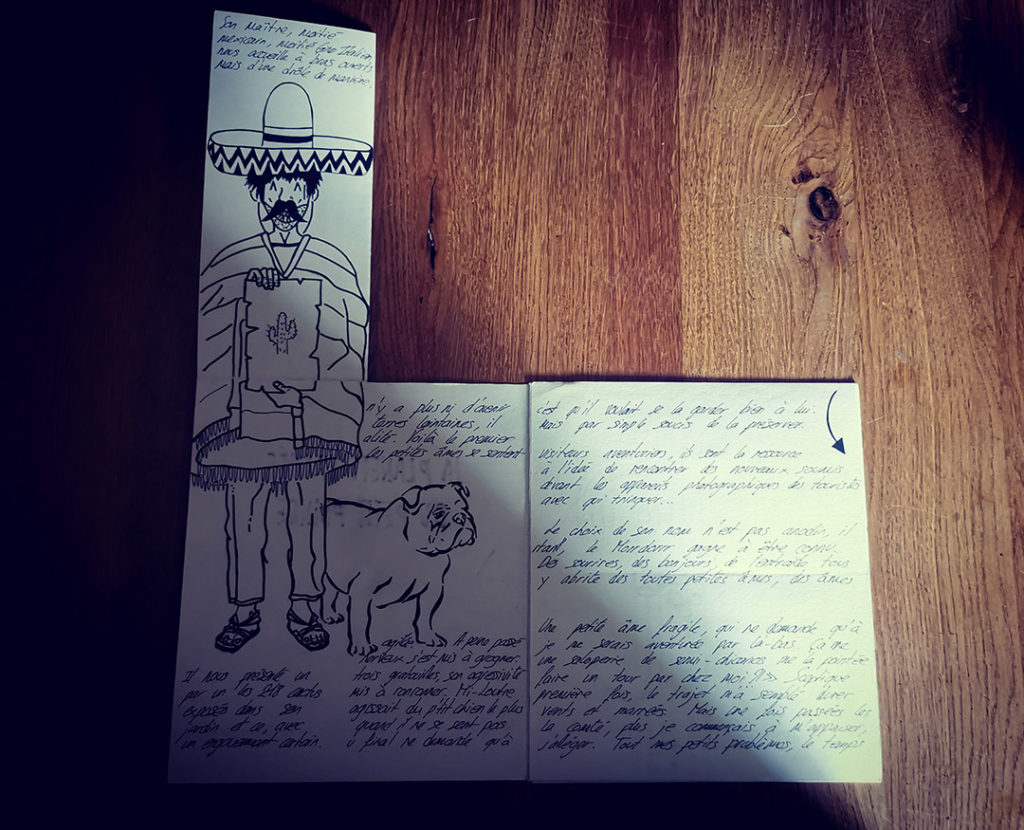 Son maître, moitié
mexicain, moitié Italien,
nous accueille à bras ouverts
mais d'une drôle de manière.
n'y a plus ni d'avenir
terres lointaines, il
alité. Voilà le premier
les petites âmes se sentent
Il nous présente un
par un les 248 cactus
exposés dans son
jardin et ce, avec
un engouement certain.
A peine passé
nerveux s'est mis à grogner.
trois gratouilles, son agressivité
mis à ronronner. Mi-Loutre
agissait du p'tit chien le plus
quand il ne se sent pas
final ne demande qu'à
c'est qu'il voulait se la garder bien à lui.
Mais par simple soucis de la préserver.
visiteurs aventuriers, ils sont la ressource
à l'idée de rencontrer des nouveaux
devant les appareils photographiques des touristes
avec qui trinquer...
Le choix de son nom n'est pas anodin, il
le gagne à être connu.
Des sourires, des bonjours, de l'entraide tous
y abrite des toutes petites âmes, des âmes
Une petite âme fragile, qui ne demande qu'à
je me serais aventurée par là-bas. Ça me
une saloperie de semi-chicanos me la pointée
faire un tour par chez moi ?!>> Sceptique
première fois, le trajet m'a semblé durer
vents et marrées. Mais une fois passées les
la comté, plus je commençais à m'appaiser,
s'alléger. Tout mes petits problèmes, le temps